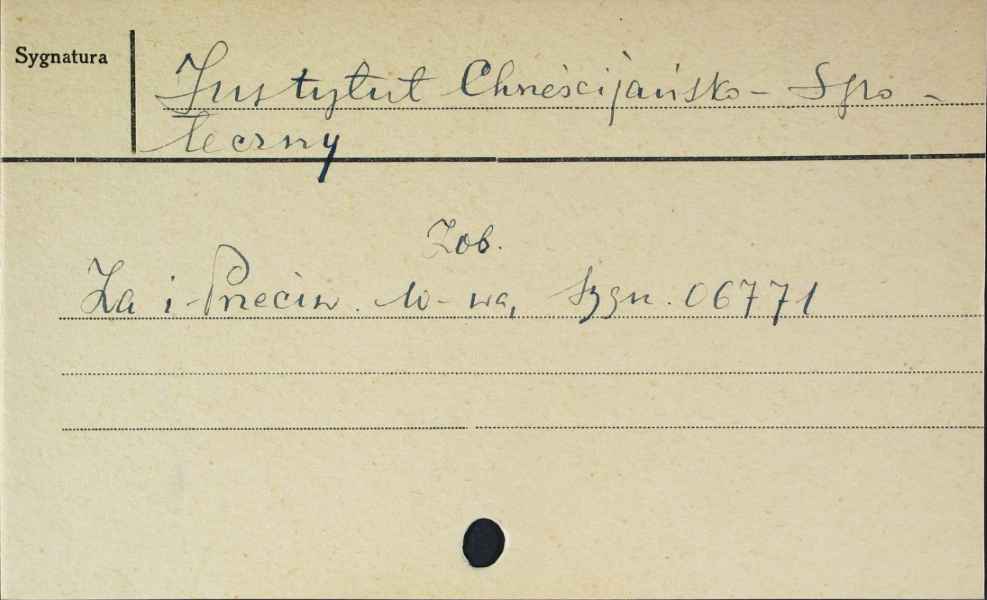 Sygnatura
Instytut Chrześcijańsko - Spo -
łeczny
Zob.
Za i Przeciw. W-wa, Sygn. 06771